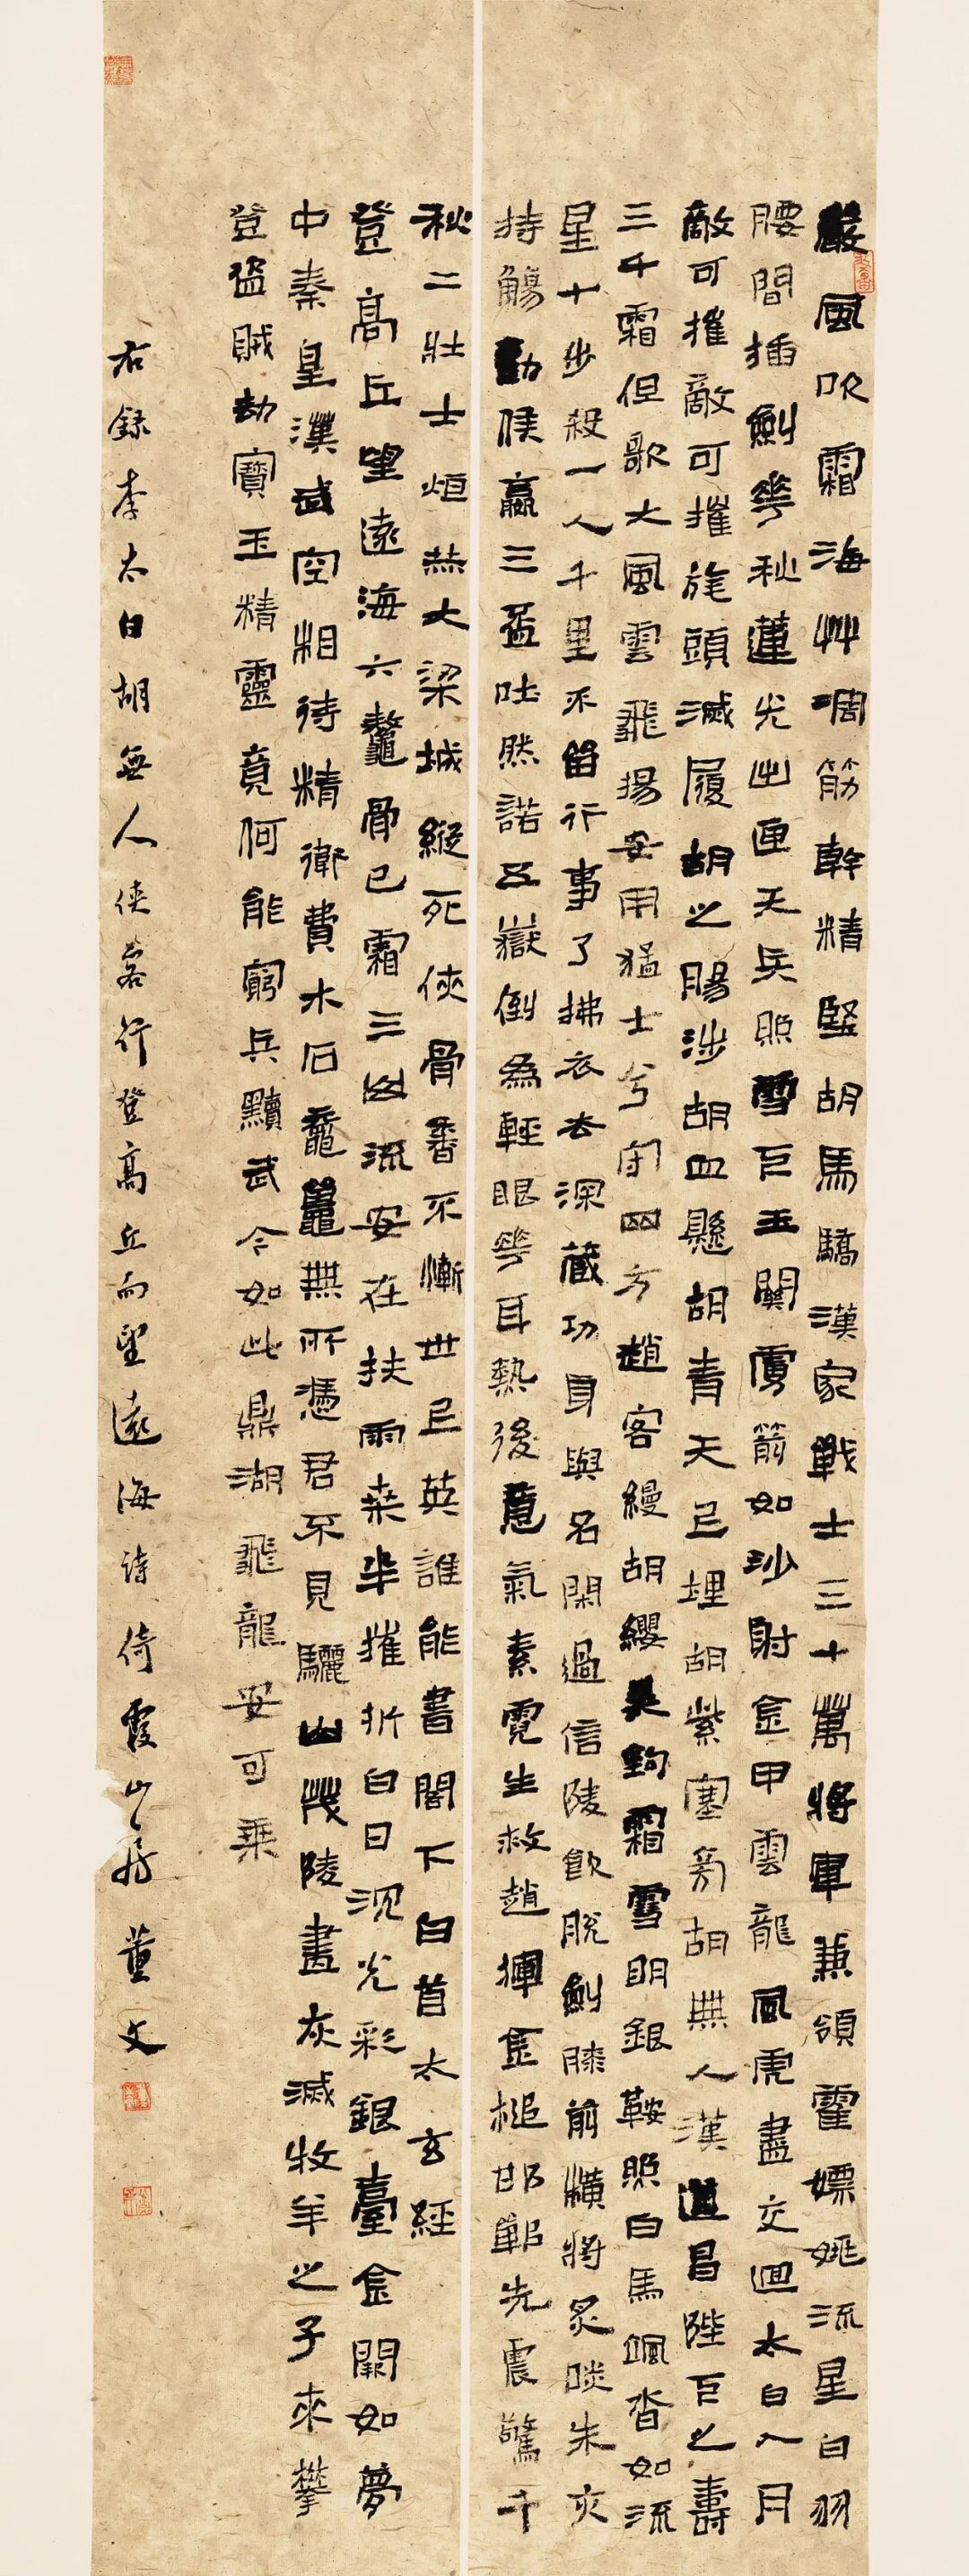 嚴風吹霜海艸凋筋幹精堅胡馬驕漢家戰士三十萬將軍兼領霍嫖姚流星白羽
腰間插劍花秋蓮光出匣天兵照雪下玉關虜箭如沙射金甲雲龍風虎盡交回太白入月
敵可摧敵可摧旄頭滅履胡之腸涉胡血懸胡青天上埋胡紫塞旁胡無人漢道昌陛下之壽
三千霜但歌大風雲飛揚安用猛士兮守四方趙客縵胡纓吳鉤霜雪明銀鞍照白馬颯沓如流
星十步殺一人千里不留行事了拂衣去深藏功身與名閑過信陵飲脫劍膝前橫將炙啖朱亥
持觴勸侯嬴三盃吐然諾五嶽倒為輕眼花耳熱後意氣素霓生救趙揮金槌邯鄲先震驚千
秋二壯士烜赫大梁城縱死俠骨香不慚世上英誰能書閣下白首太玄經
登高丘望遠海六鼇骨已霜三山流安在扶桑半摧折白日沉光彩銀臺金闕如夢
中秦皇漢武空相待精衛費木石黿鼉無所憑君不見驪山茂陵盡灰滅牧羊之子來攀
登盜賊劫寶玉精靈竟何能窮兵黷武今如此鼎湖飛龍安可乘
右錄李太白胡無人俠客行登高丘而望遠海詩倚霞山房董文